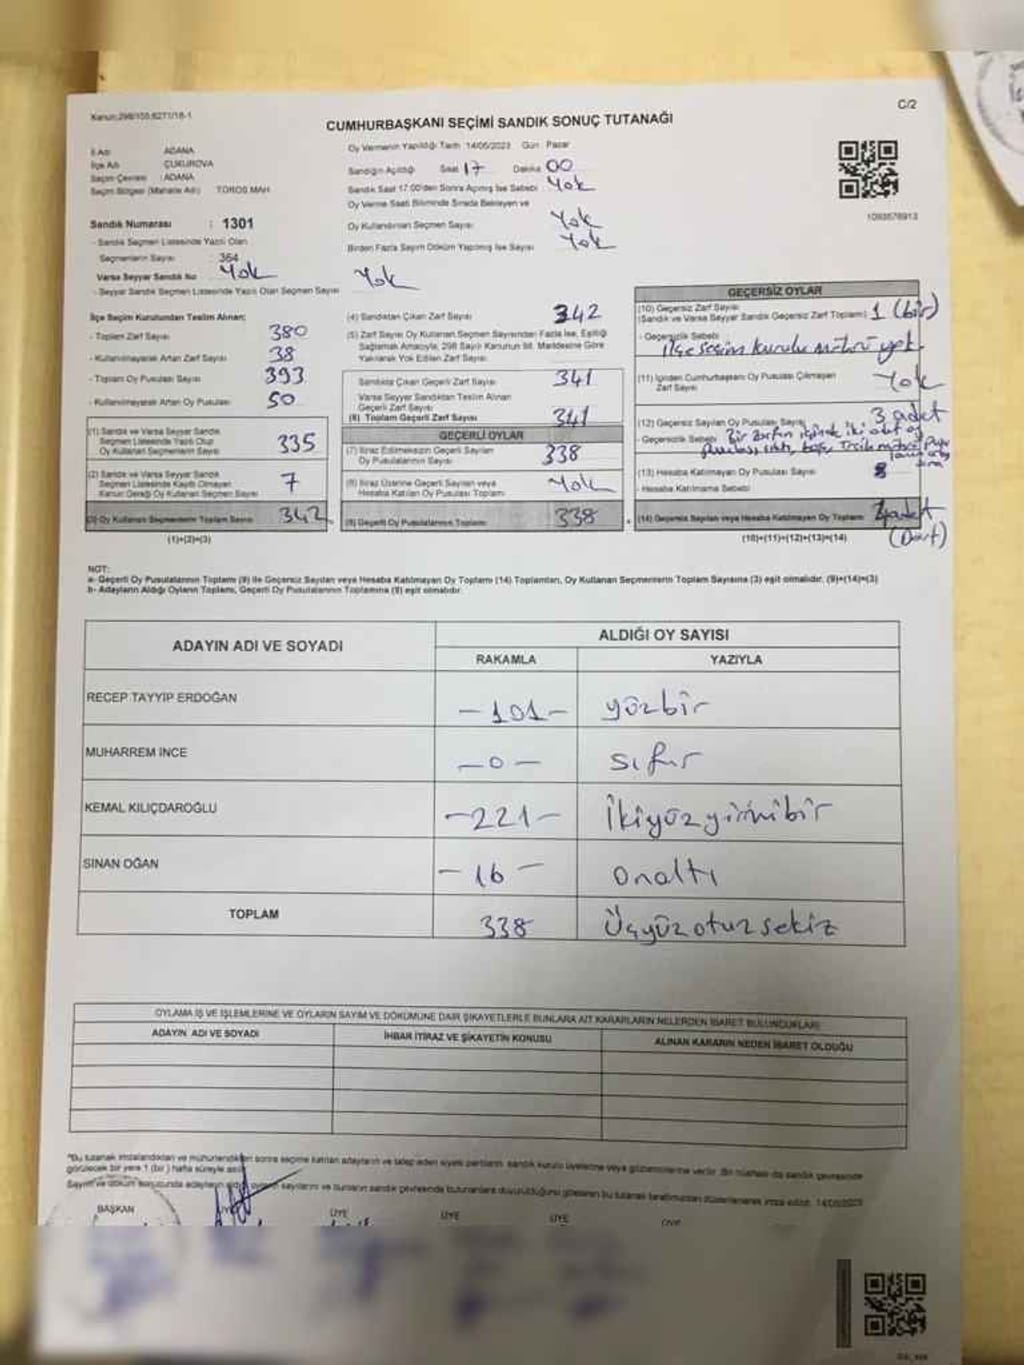 Kanun:298/105;6271/18-1
C/2
CUMHURBAŞKANI SEÇİMİ SANDIK SONUÇ TUTANAĞI
İl Adı ADANA
İlçe Adı ÇUKUROVA
Seçim Çevresi ADANA
Seçim Bölgesi (Mahalle Adı) TOROS MAH
Sandık Numarası : 1301
- Sandık Seçmen Listesinde Yazılı Olan
Seçmenlerin Sayısı : 364
Varsa Seyyar Sandık No Yok
- Seyyar Sandık Seçmen Listesinde Yazılı Olan Seçmen Sayısı Yok
Oy Vermenin Yapıldığı Tarih 14/05/2023 Gün Pazar
Sandığın Açıldığı Saat 17 Dakika 00
Sandık Saat 17:00'den Sonra Açılmış İse Sebebi Yok
Oy Verme Saati Bitiminde Sırada Bekleyen ve
Oy Kullandırılan Seçmen Sayısı Yok
Birden Fazla Sayım Döküm Yapılmış İse Sayısı Yok
1093576913
İlçe Seçim Kurulundan Teslim Alınan;
- Toplam Zarf Sayısı 380
- Kullanılmayarak Artan Zarf Sayısı 38
- Toplam Oy Pusulası Sayısı 393
- Kullanılmayarak Artan Oy Pusulası 50
(1) Sandık ve Varsa Seyyar Sandık
Seçmen Listesinde Yazılı Olup
Oy Kullanan Seçmenlerin Sayısı 335
(2) Sandık ve Varsa Seyyar Sandık
Seçmen Listesinde Kayıtlı Olmayan
Kanun Gereği Oy Kullanan Seçmen Sayısı 7
(3) Oy Kullanan Seçmenlerin Toplam Sayısı 342
(1)+(2)=(3)
(4) Sandıktan Çıkan Zarf Sayısı 342
(5) Zarf Sayısı Oy Kullanan Seçmen Sayısından Fazla İse, Eşitliği
Sağlamak Amacıyla, 298 Sayılı Kanunun 98. Maddesine Göre
Yakılarak Yok Edilen Zarf Sayısı
Sandıkta Çıkan Geçerli Zarf Sayısı 341
Varsa Seyyar Sandıktan Teslim Alınan
Geçerli Zarf Sayısı
(6) Toplam Geçerli Zarf Sayısı 341
GEÇERLİ OYLAR
(7) İtiraz Edilmeksizin Geçerli Sayılan
Oy Pusulalarının Sayısı 338
(8) İtiraz Üzerine Geçerli Sayılan veya
Hesaba Katılan Oy Pusulası Toplamı Yok
(9) Geçerli Oy Pusulalarının Toplamı 338
GEÇERSİZ OYLAR
(10) Geçersiz Zarf Sayısı
(Sandık ve Varsa Seyyar Sandık Geçersiz Zarf Toplamı) 1 (bir)
- Geçersizlik Sebebi
ilçe seçim kurulu mührü yok
(11) İçinden Cumhurbaşkanı Oy Pusulası Çıkmayan
Zarf Sayısı Yok
(12) Geçersiz Sayılan Oy Pusulası Sayısı 3 adet
- Geçersizlik Sebebi Bir zarfın içinde iki adet oy
pusulası çıktı, boş, Tercih mührü
(13) Hesaba Katılmayan Oy Pusulası Sayısı
- Hesaba Katılmama Sebebi
(14) Geçersiz Sayılan veya Hesaba Katılmayan Oy Toplamı 4 adet
(Dört)
(10)+(11)+(12)+(13)=(14)
NOT:
a- Geçerli Oy Pusulalarının Toplamı (9) ile Geçersiz Sayılan veya Hesaba Katılmayan Oy Toplamı (14) Toplamları, Oy Kullanan Seçmenlerin Toplam Sayısına (3) eşit olmalıdır. (9)+(14)=(3)
b- Adayların Aldığı Oyların Toplamı, Geçerli Oy Pusulalarının Toplamına (9) eşit olmalıdır.
ADAYIN ADI VE SOYADI
ALDIĞI OY SAYISI
RAKAMLA YAZIYLA
RECEP TAYYIP ERDOĞAN -101- yüzbir
MUHARREM INCE -0- sıfır
KEMAL KILIÇDAROĞLU -221- İkiyüzyirmibir
SINAN OĞAN -16- onaltı
TOPLAM 338 Üçyüzotuzsekiz
OYLAMA İŞ VE İŞLEMLERİNE VE OYLARIN SAYIM VE DÖKÜMÜNE DAİR ŞİKAYETLERLE BUNLARA AİT KARARLARIN NELERDEN İBARET BULUNDUKLARI
ADAYIN ADI VE SOYADI
İHBAR İTİRAZ VE ŞİKAYETİN KONUSU
ALINAN KARARIN NEDEN İBARET OLDUĞU
*Bu tutanak imzalandıktan ve mühürlendikten sonra seçime katılan adayların ve talep eden siyasi partilerin sandık kurulu üyelerine veya gözlemcilerine verilir. Bir nüshası da sandık çevresinde
görülecek bir yere 1 (bir) hafta süreyle asılır.
Sayım ve döküm sonucunda adayların aldığı oyların sayılarını ve bunların sandık çevresinde bulunanlara duyurulduğunu gösteren bu tutanak tarafımızdan düzenlenerek imza edildi. 14/05/2023
BAŞKAN ÜYE ÜYE ÜYE ÜYE